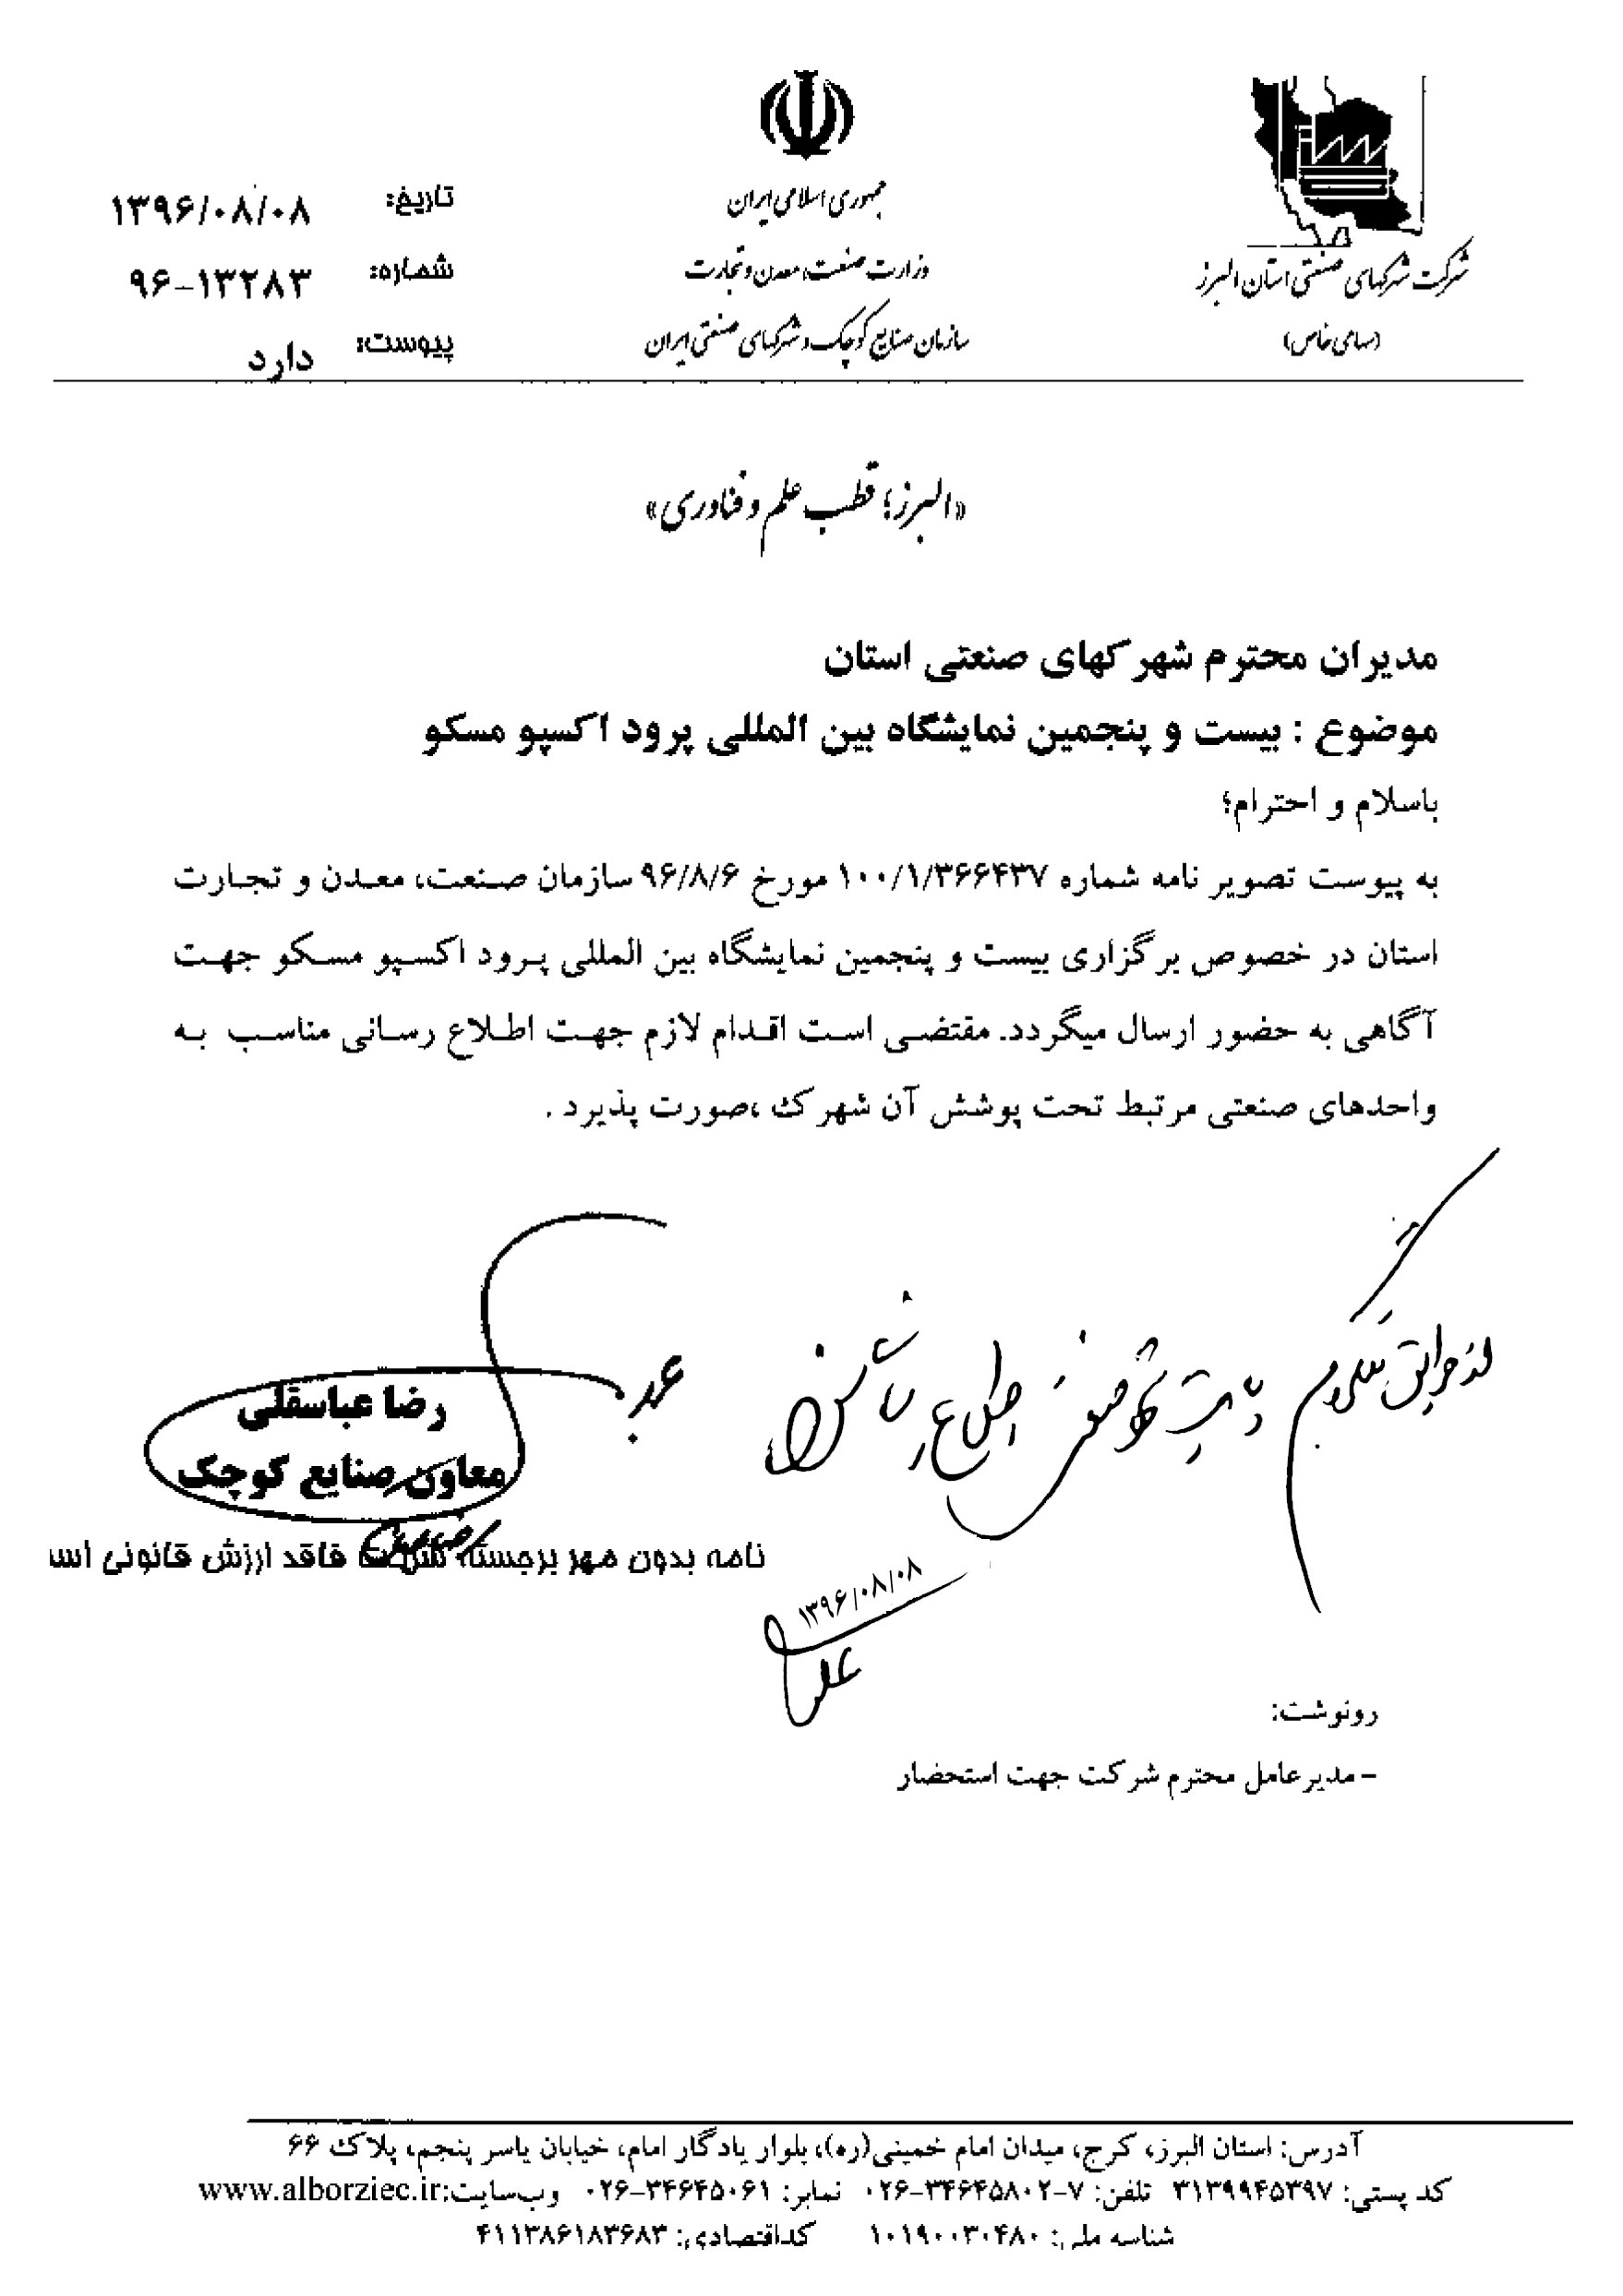 شرکت شهرکهای صنعتی استان البرز
(سهامی خاص)
جمهوری اسلامی ایران
وزارت صنعت، معدن و تجارت
سازمان صنایع کوچک و شهرکهای صنعتی ایران
تاریخ: ۱۳۹۶/۰۸/۰۸
شماره: ۹۶-۱۳۲۸۳
پیوست: دارد
«البرز؛ قطب علم و فناوری»
مدیران محترم شهرکهای صنعتی استان
موضوع : بیست و پنجمین نمایشگاه بین المللی پرود اکسپو مسکو
باسلام و احترام؛
به پیوست تصویر نامه شماره ۱۰۰/۱/۳۶۶۴۳۷ مورخ ۹۶/۸/۶ سازمان صنعت، معدن و تجارت
استان در خصوص برگزاری بیست و پنجمین نمایشگاه بین المللی پرود اکسپو مسکو جهت
آگاهی به حضور ارسال میگردد. مقتضی است اقدام لازم جهت اطلاع رسانی مناسب به
واحدهای صنعتی مرتبط تحت پوشش آن شهرک ،صورت پذیرد .
اطلاع
رضا عباسقلی
معاون صنایع کوچک
نامه بدون مهر برجسته شرکت فاقد ارزش قانونی اس
۱۳۹۶/۰۸/۰۸
رونوشت:
- مدیرعامل محترم شرکت جهت استحضار
آدرس: استان البرز، کرج، میدان امام خمینی(ره)، بلوار یادگار امام، خیابان یاسر پنجم، پلاک ۶۶
کد پستی: ۳۱۳۹۹۴۵۳۹۷ تلفن: ۷-۰۲۶-۳۴۶۴۵۸۰۲ نمابر: ۰۲۶-۳۴۶۴۵۰۶۱ وب‌سایت:www.alborziec.ir
شناسه ملی: ۱۰۱۹۰۰۳۰۴۸۰ کداقتصادی: ۴۱۱۳۸۶۱۸۳۶۸۳